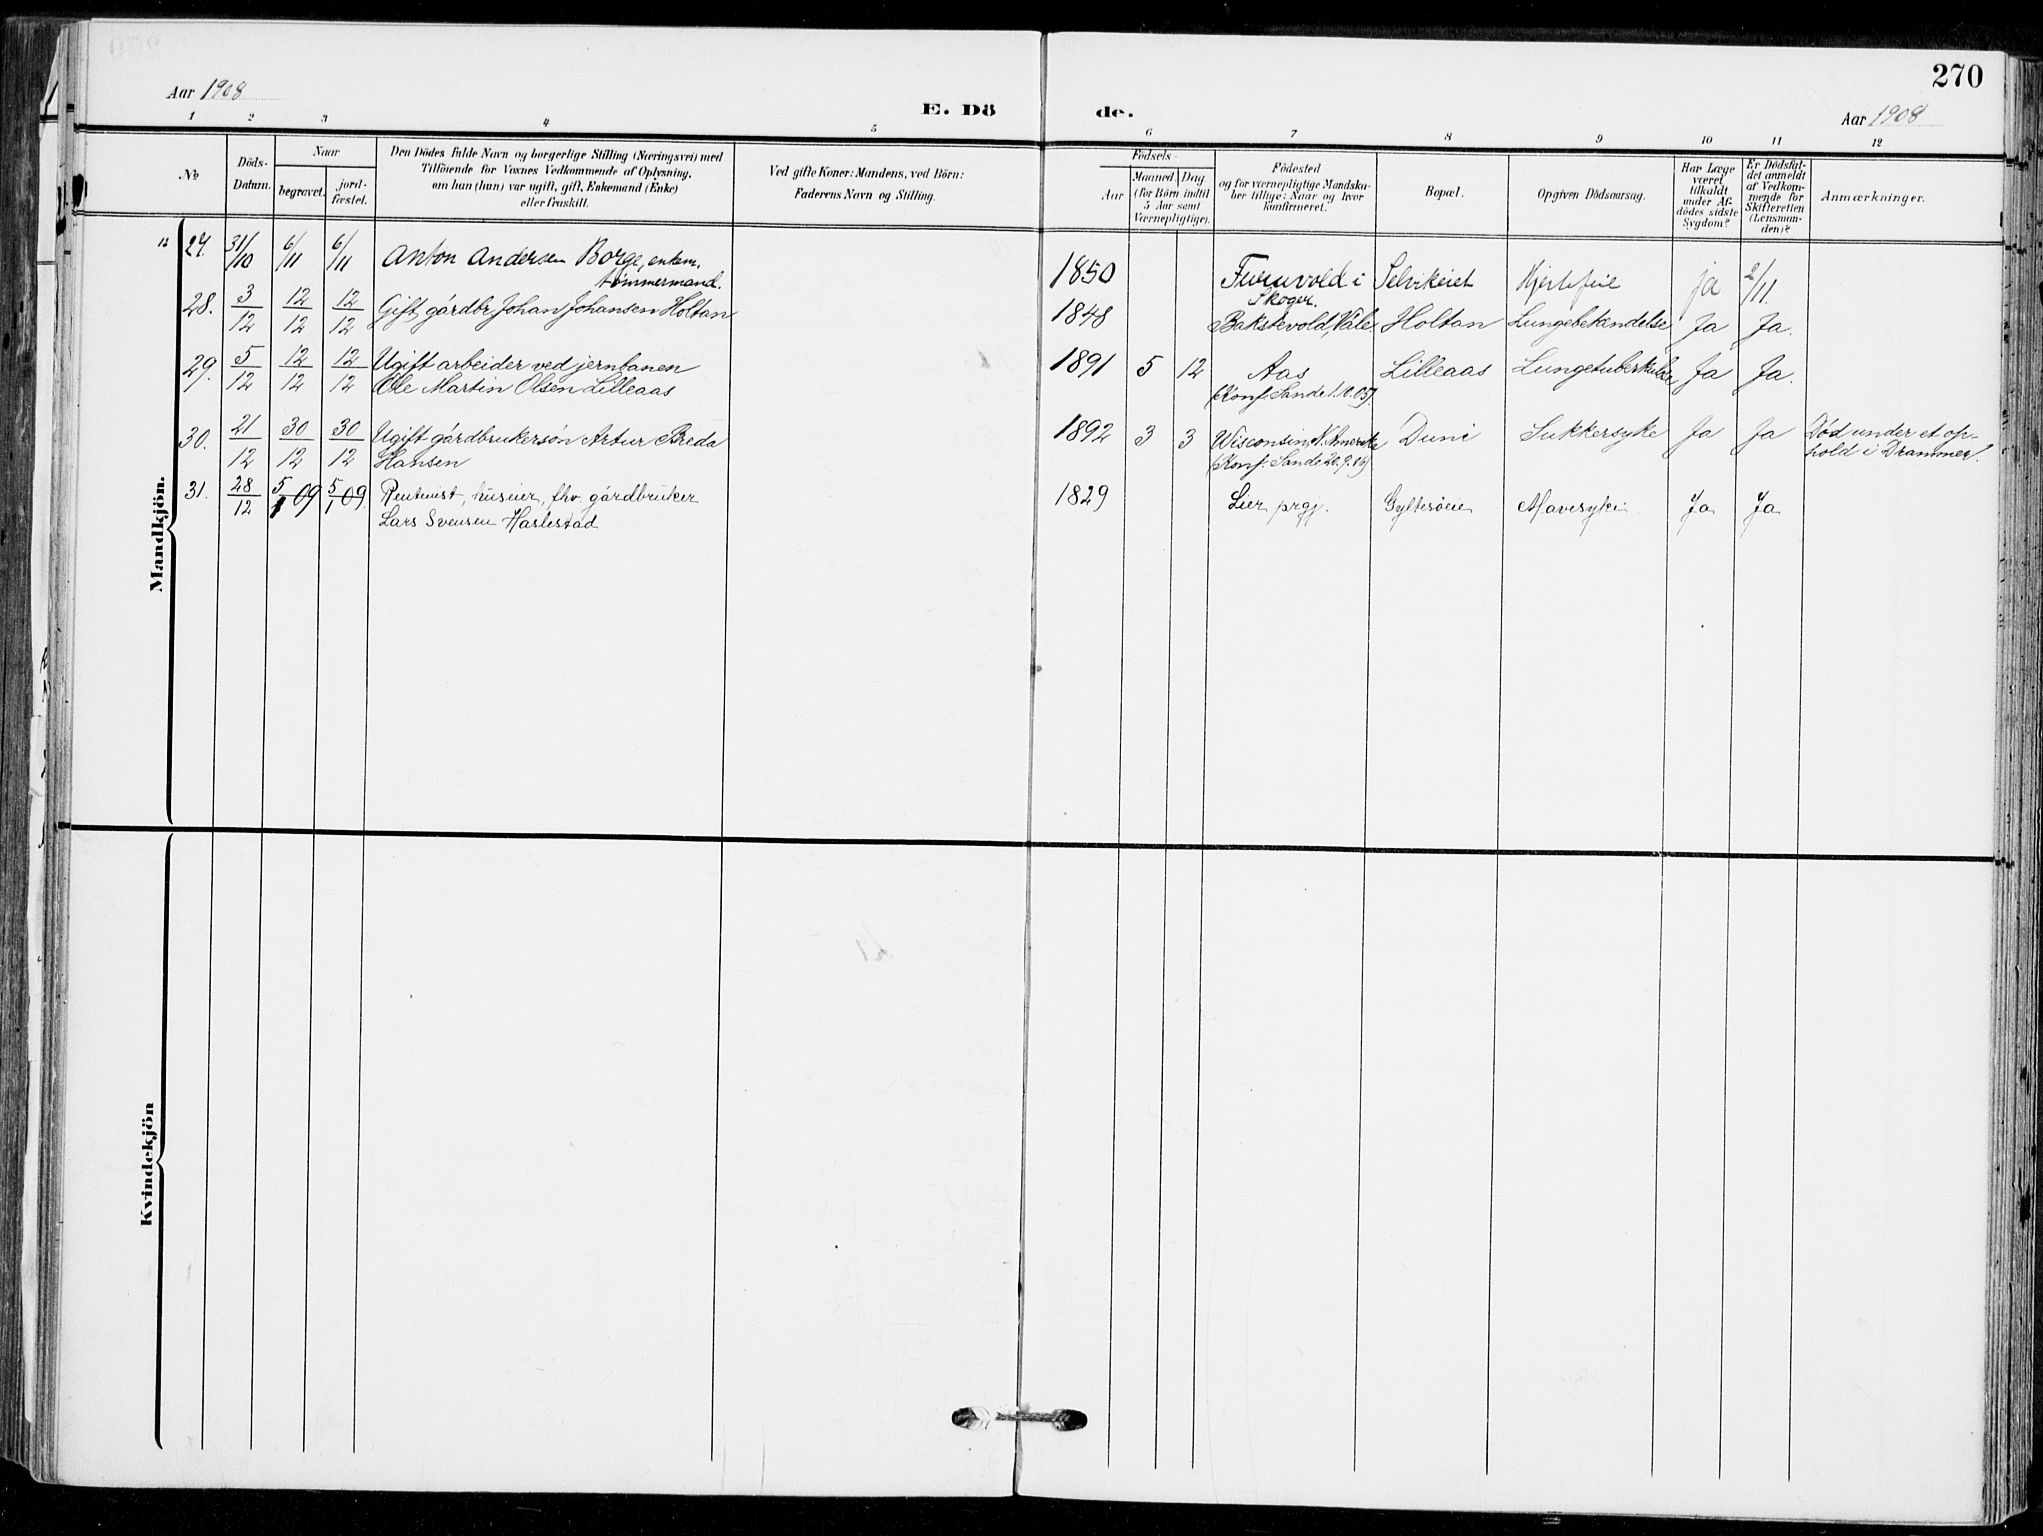 270
Aar 1908
E. Dö de.
Aar 1908
1 2 3 4 5 6 7 8 9 10 11 12
No
Döds-
Datum.
Naar
begravet.
jord-
fæstet.
Den Dödes fulde Navn og borgerlige Stilling (Næringsvei) med
Tilföiende for Voxnes Vedkommende af Oplysning,
om han (hun) var ugift, gift, Enkemand (Enke)
eller fraskilt.
Ved gifte Koner: Mandens, ved Börn:
Faderens Navn og Stilling.
Födsels-
Aar
Maaned.
Dag
(for Börn indtil
5 Aar samt
Værnepligtige).
Födested
og for værnepligtige Mandska-
ber tillige: Naar og hvor
konfirmeret.
Bopæl.
Opgiven Dödsaarsag.
Har Læge
været
tilkaldt
under Af-
dödes sidste
Sygdom?
Er Dödsfal-
det anmeldt
af Vedkom-
mende for
Skifteretten
(Lensman-
den)?
Anmærkninger.
Mandkjön.
12
27. 31/10 6/11 6/11 Anton Andersen Borge, enkem. tømmermand. 1850 Furuvold i Skoger. Selvikeiet Hjertefeil ja 2/11.
28. 3/12 12/12 12/12 Gift gårdbr Johan Johansen Holtan 1848 Bakstevold, Våle Holtan Lungebetændelse Ja Ja.
29. 5/12 12/12 12/12 Ugift arbeider ved jernbanen 1891 5 12 Aas Lilleaas Lungetuberkulose Ja Ja.
Ole Martin Olsen Lilleaas (Konf. Sande 1.10.05).
30. 21/12 30/12 30/12 Ugift gårdbrukersøn Artur Breda 1892 3 3 Wisconsin, N. Amerika Duni Sukkersyke Ja Ja Død under et op-
Hansen (Konf. Sande 20.9.06) hold i Drammen.
31. 28/12 5/1 09 5/1 09. Rentenist, huseier, fhv. gårdbruker 1829 Lier prgj. Gyltesøeie Mavesyke Ja Ja
Lars Svensen Harlestad
Kvindekjön